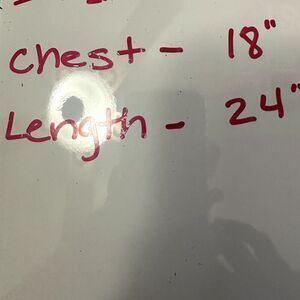 Chest - 18"
Length - 24"